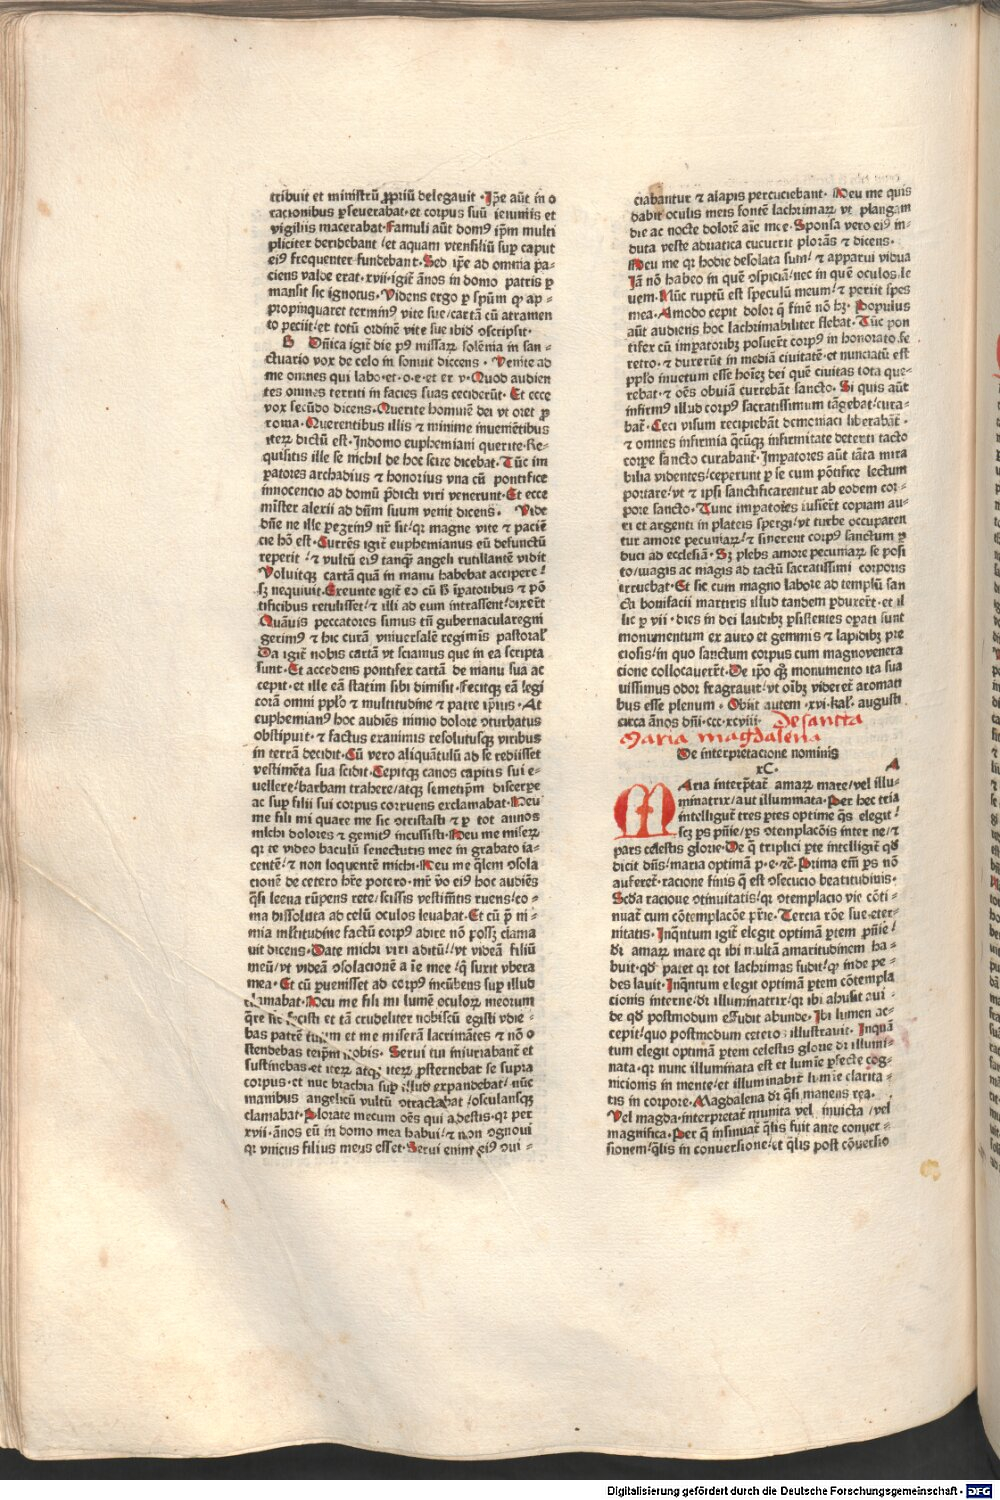 tribuit et ministrũ ꝓpriũ delegauit · Ip̃e aũt in o
racionibus ꝑseuerabat· et corpus suũ ieiuniis et
vigiliis macerabat· Famuli aũt domꝰ ip̃m multi
pliciter deridebant / et aquam vtensiliũ suꝑ caput
eiꝰ frequenter fundebant· Sed ip̃e ad omnia pa-
ciens valde erat· xvii· igit̃ ãnos in domo patris ꝑ
mansit sic ignotus· Videns ergo ꝑ spũm ꝙ ap-
propinquaret terminꝰ vite sue / cartã cũ atramen
to peciit / et totũ ordinẽ vite sue ibid ꝯscripsit·
B Dñica igit̃ die pꝰ missaꝝ solẽnia in san-
ctuario vox de celo in sonuit diccens · Venite ad
me omnes qui labo· et· o· e· et er v· Quod audien
tes omnes territi in facies suas ceciderũt· Et ecce
vox secũdo dicens· Querite hominẽ dei vt oret ꝑ
roma· Querentibus illis et minime inueniẽtibus
iteꝝ dictũ est· In domo euphemiani querite· Re-
quisitus ille se nichil de hoc scire dicebat· Tũc im
ꝑatores archadius et honorius vna cũ pontifice
innocencio ad domũ p̃dicti viri venerunt· Et ecce
mĩster alexii ad dñm suum venit dicens· Vide
dñe ne ille peregrinꝰ nr̃ sit / qr magne vite et paciẽ
cie hõ est· Currẽs igit̃ euphemianus eũ defunctũ
reperit / et vultũ eiꝰ tanqꝫ angeli rutillantẽ vidit
Voluitqꝫ cartã quã in manu habebat accipere /
sꝫ nequiuit· Exeunte igit̃ eo cũ h̃ imꝑatoribus et põ
tificibus retulisset / et illi ad eum intrassent / dixer̃t
Quãuis peccatores simus tñ gubernacula regni
gerimꝰ et hic curã vniuersalẽ regimĩs pastoral̃
Da igit̃ nobis cartã vt sciamus que in ea scripta
sunt· Et accedens pontifex cartã de manu sua ac
cepit· et ille eã statim sibi dimisit· Fecitqꝫ eã legi
corã omni ppl̃o et multitudine et patre ip̃ius· At
euphemianꝰ hoc audiẽs nimio dolore ꝯturbatus
obstipuit· et factus exanimis resolutusqꝫ viribus
in terrã decidit· Cũ vero aliquãtulũ ad se rediisset
vestimẽta sua scidit· Cepitqꝫ canos capitis sui e-
uellere / barbam trahere / atqꝫ semetip̃m discerpe
ac suꝑ filii sui corpus corruens exclamabat· Heu
me fili mi quare me sic ꝯtristasti et ꝑ tot annos
michi dolores et gemitꝰ incussisti· Heu me miseꝝ
qr te video baculũ senectutis mee in grabato ia-
centẽ / et non loquentẽ michi· Heu me q̃lem ꝯsola
cionẽ de cetero hr̃e potero· mr̃ ṽo eiꝰ hoc audiẽs
q̃si leena rũpens rete / scissis vestimẽtis ruens / co-
ma dissoluta ad celũ oculos leuabat· Et cũ p̃ ni-
mia ml̃titudine factũ corpꝰ adire nõ possꝫ clama
uit dicens· Date michi viri aditũ / vt videã filiũ
meũ / vt videã ꝯsolacionẽ aĩe mee / q̃ suxit vbera
mea· Et cũ ꝑuenisset ad corpꝰ incũbens suꝑ illud
clamabat· Heu me fili mi lumẽ oculoꝝ meorum
q̃re sic fecisti et tã crudeliter nobiscũ egisti vdie-
bas patrẽ tuum et me miserã lacrimãtes et nõ o
stendebas teip̃m nobis· Serui tui iniuriabant̃ et
sustinebas· et iteꝝ atqꝫ iteꝝ ꝓsternebat se supra
corpus· et nũc brachia suꝑ illud expandebat / nũc
manibus angelicũ vultũ ꝯtractabat / osculansqꝫ
clamabat· Plorate mecum oẽs qui adestis· qr per
xvii· ãnos eũ in domo mea habui / et non ognoui
qr vnicus filius meus esset· Serui enim eiꝰ oui-
ciabantur et alapis percuciebant· Heu me quis
dabit oculis meis fontẽ lachrimaꝝ vt plangam
die ac nocte dolorẽ aĩe mee· Sponsa vero eiꝰ in-
duta veste adriatica cucurrit plorãs et dicens·
Heu me qr hodie desolata sum / et apparui vidua
Iã nõ habeo in quẽ ꝯspiciã / nec in quẽ oculos le
uem· Nũc ruptũ est speculũ meum / et periit spes
mea· Amodo cepit dolor q̃ finẽ nõ hꝫ· Populus
aũt audiens hoc lachrimabiliter flebat· Tũc pon
tifex cũ imꝑatoribꝫ posuer̃t corpꝰ in honorato fe
retro· et duxerũt in mediã ciuitatẽ· et nunciatũ est
ppl̃o inuetum esse hoĩez dei quẽ ciuitas tota que-
rebat· et oẽs obuiã currebãt sancto· Si quis aũt
infirmꝰ illud corpꝰ sacratissimum tãgebat / cura-
bat̃· Ceci visum recipiebãt demoniaci liberabãt̃·
et omnes infirmia q̃cũqꝫ infirmitate detenti tacto
corꝑe sancto curabant̃· Imꝑatores aũt tãta mira
bilia videntes / ceperunt ꝑ se cum põtifice lectum
portare / vt et ipsi sanctificarentur ab eodem cor-
pore sancto· Tunc imꝑatores iusser̃t copiam au-
ri et argenti in plateis spergi / vt turbe occuparen
tur amore pecuniaꝝ / et sinerent corpꝰ sanctum ꝑ
duci ad ecclesiã· Sꝫ plebs amore pecuniaꝝ se posi
to / magis ac magis ad tactũ sacratissimi corporis
irruebat· Et sic cum magno labore ad templũ san
cti bonifacii martiris illud tandem ꝑduxer̃t· et il
lic ꝑ vii· dies in dei laudibꝫ ꝑsistentes oꝑati sunt
monumentum ex auro et gemmis et lapidibꝫ pre
ciosis / in quo sanctum corpus cum magno venera
cione collocauer̃t· De ip̃o qͥꝫ monumento ita sua
uissimus odor fragrauit / vt oĩbꝫ videret̃ aromati
bus esse plenum· Obiit autem· xvi· kal̃· augusti
circa ãnos dñi· ccc· xcviii· De sancta
Maria magdalena
De interpretacione nominis
xC· A
MAria interp̃tat̃ amaꝝ mare / vel illu-
minatrix / aut illuminata· Per hec tria
intelligunt̃ tres ꝑtes optime q̃s elegit /
scꝫ ꝑs pñie / ꝑs ꝯtemplacõis inter ne / et
pars celestis glorie· De q̃ triplici ꝑte intelligit̃ qd̃
dicit dñs / maria optimã p· e· ꝛc̃· Prima em̃ ꝑs nõ
auferet̃· racione finis q̃ est ꝯsecucio beatitudinis·
Scd̃a racione ꝯtinuitatis / qr ꝯtemplacio vie cõti-
nuat̃ cum cõtemplacõe pr̃ie· Tercia rõe sue eter-
nitatis· Inq̃ntum igit̃ elegit optimã ꝑtem pñie /
dr̃ amaꝝ mare qr ibi multã amaritudinem ha-
buit· qd̃ patet qr tot lachrimas fudit / qͩ inde pe-
des lauit· Inq̃ntum elegit optimã ꝑtem cõtempla
cionis interne / dr̃ illuminatrix / qr ibi ahusit aui-
de qd̃ postmodum effudit abunde· Ibi lumen ac-
cepit / quo postmodum ceteros illustrauit· Inquã
tum elegit optimã ꝑtem celestis glorie dr̃ illumi-
nata· qr nunc illuminata est et lumĩe ꝑfecte cog-
nicionis in mente / et illuminabit̃ lumĩe clarita-
tis in corpore· Magdalena dr̃ q̃si manens rea·
Vel magda· interpretat̃ munita vel inuicta / vel
magnifica· Per q̃ insinuat̃ q̃lis fuit ante conuer-
sionem / q̃lis in conuersione / et q̃lis post cõuersio
Digitalisierung gefördert durch die Deutsche Forschungsgemeinschaft - DFG